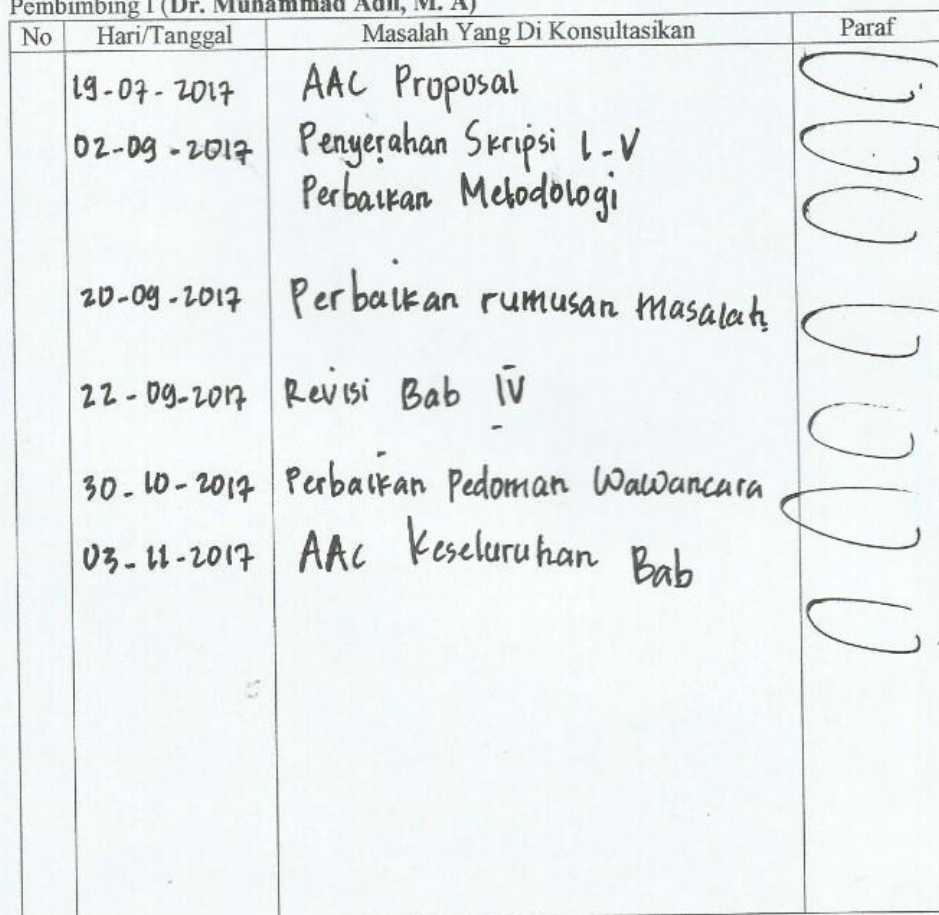 Pembimbing I (Dr. Muhammad Adil, M. A)
No Hari/Tanggal Masalah Yang Di Konsultasikan Paraf
19-07-2017 AAC Proposal
02-09-2017 Penyerahan Skripsi I-V
Perbaikan Metodologi
20-09-2017 Perbaikan rumusan masalah
22-09-2017 Revisi Bab IV
30-10-2017 Perbaikan Pedoman Wawancara
03-11-2017 AAC Keseluruhan Bab